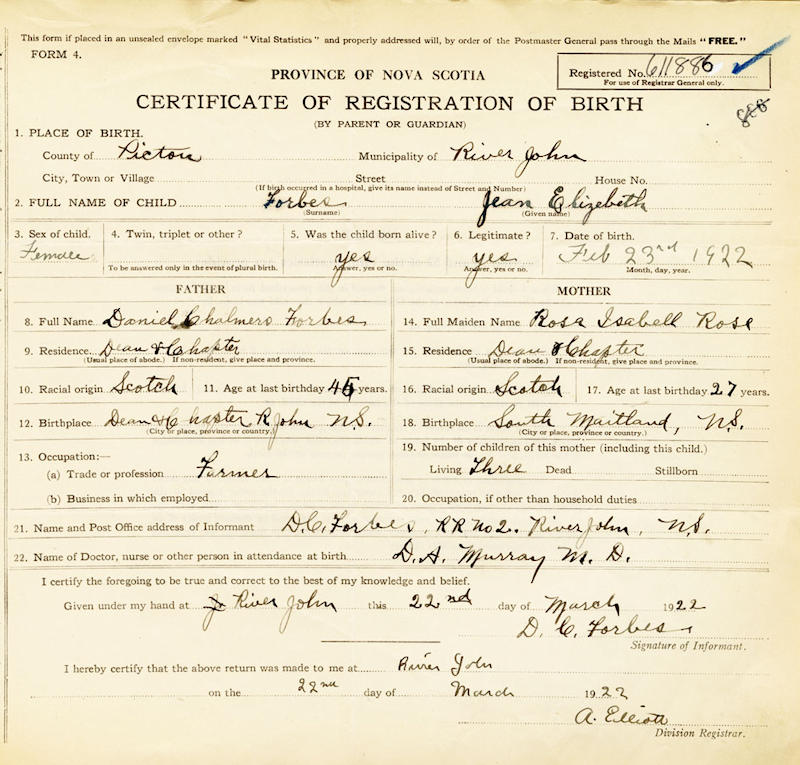 This form if placed in an unsealed envelope marked "Vital Statistics" and properly addressed will, by order of the Postmaster General pass through the Mails "FREE."
FORM 4.
Registered No. 611886
For use of Registrar General only.
PROVINCE OF NOVA SCOTIA
CERTIFICATE OF REGISTRATION OF BIRTH
(BY PARENT OR GUARDIAN)
1. PLACE OF BIRTH.
County of Pictou Municipality of River John
City, Town or Village Street House No.
(If birth occurred in a hospital, give its name instead of Street and Number)
2. FULL NAME OF CHILD Forbes Jean Elizebeth
(Surname) (Given name)
3. Sex of child. 4. Twin, triplet or other? 5. Was the child born alive? 6. Legitimate? 7. Date of birth.
Female yes yes Feb 23rd 1922
To be answered only in the event of plural birth. Answer, yes or no. Answer, yes or no. Month, day, year.
FATHER MOTHER
8. Full Name Daniel Chalmers Forbes 14. Full Maiden Name Rosa Isabell Rose
9. Residence Dean & Chapter 15. Residence Dean & Chapter
(Usual place of abode.) If non-resident, give place and province. (Usual place of abode.) If non-resident, give place and province.
10. Racial origin Scotch 11. Age at last birthday 45 years. 16. Racial origin Scotch 17. Age at last birthday 27 years.
12. Birthplace Dean & Chapter R. John N.S. 18. Birthplace South Maitland, N.S.
(City or place, province or country.) (City or place, province or country.)
13. Occupation:— 19. Number of children of this mother (including this child.)
(a) Trade or profession Farmer Living Three Dead Stillborn
(b) Business in which employed 20. Occupation, if other than household duties
21. Name and Post Office address of Informant D.C. Forbes, RR No 2. River John, N.S.
22. Name of Doctor, nurse or other person in attendance at birth D. A. Murray M. D.
I certify the foregoing to be true and correct to the best of my knowledge and belief.
Given under my hand at River John this 22nd day of March 1922
D. C. Forbes
Signature of Informant.
I hereby certify that the above return was made to me at River John
on the 22nd day of March 1922
A. Elliott
Division Registrar.